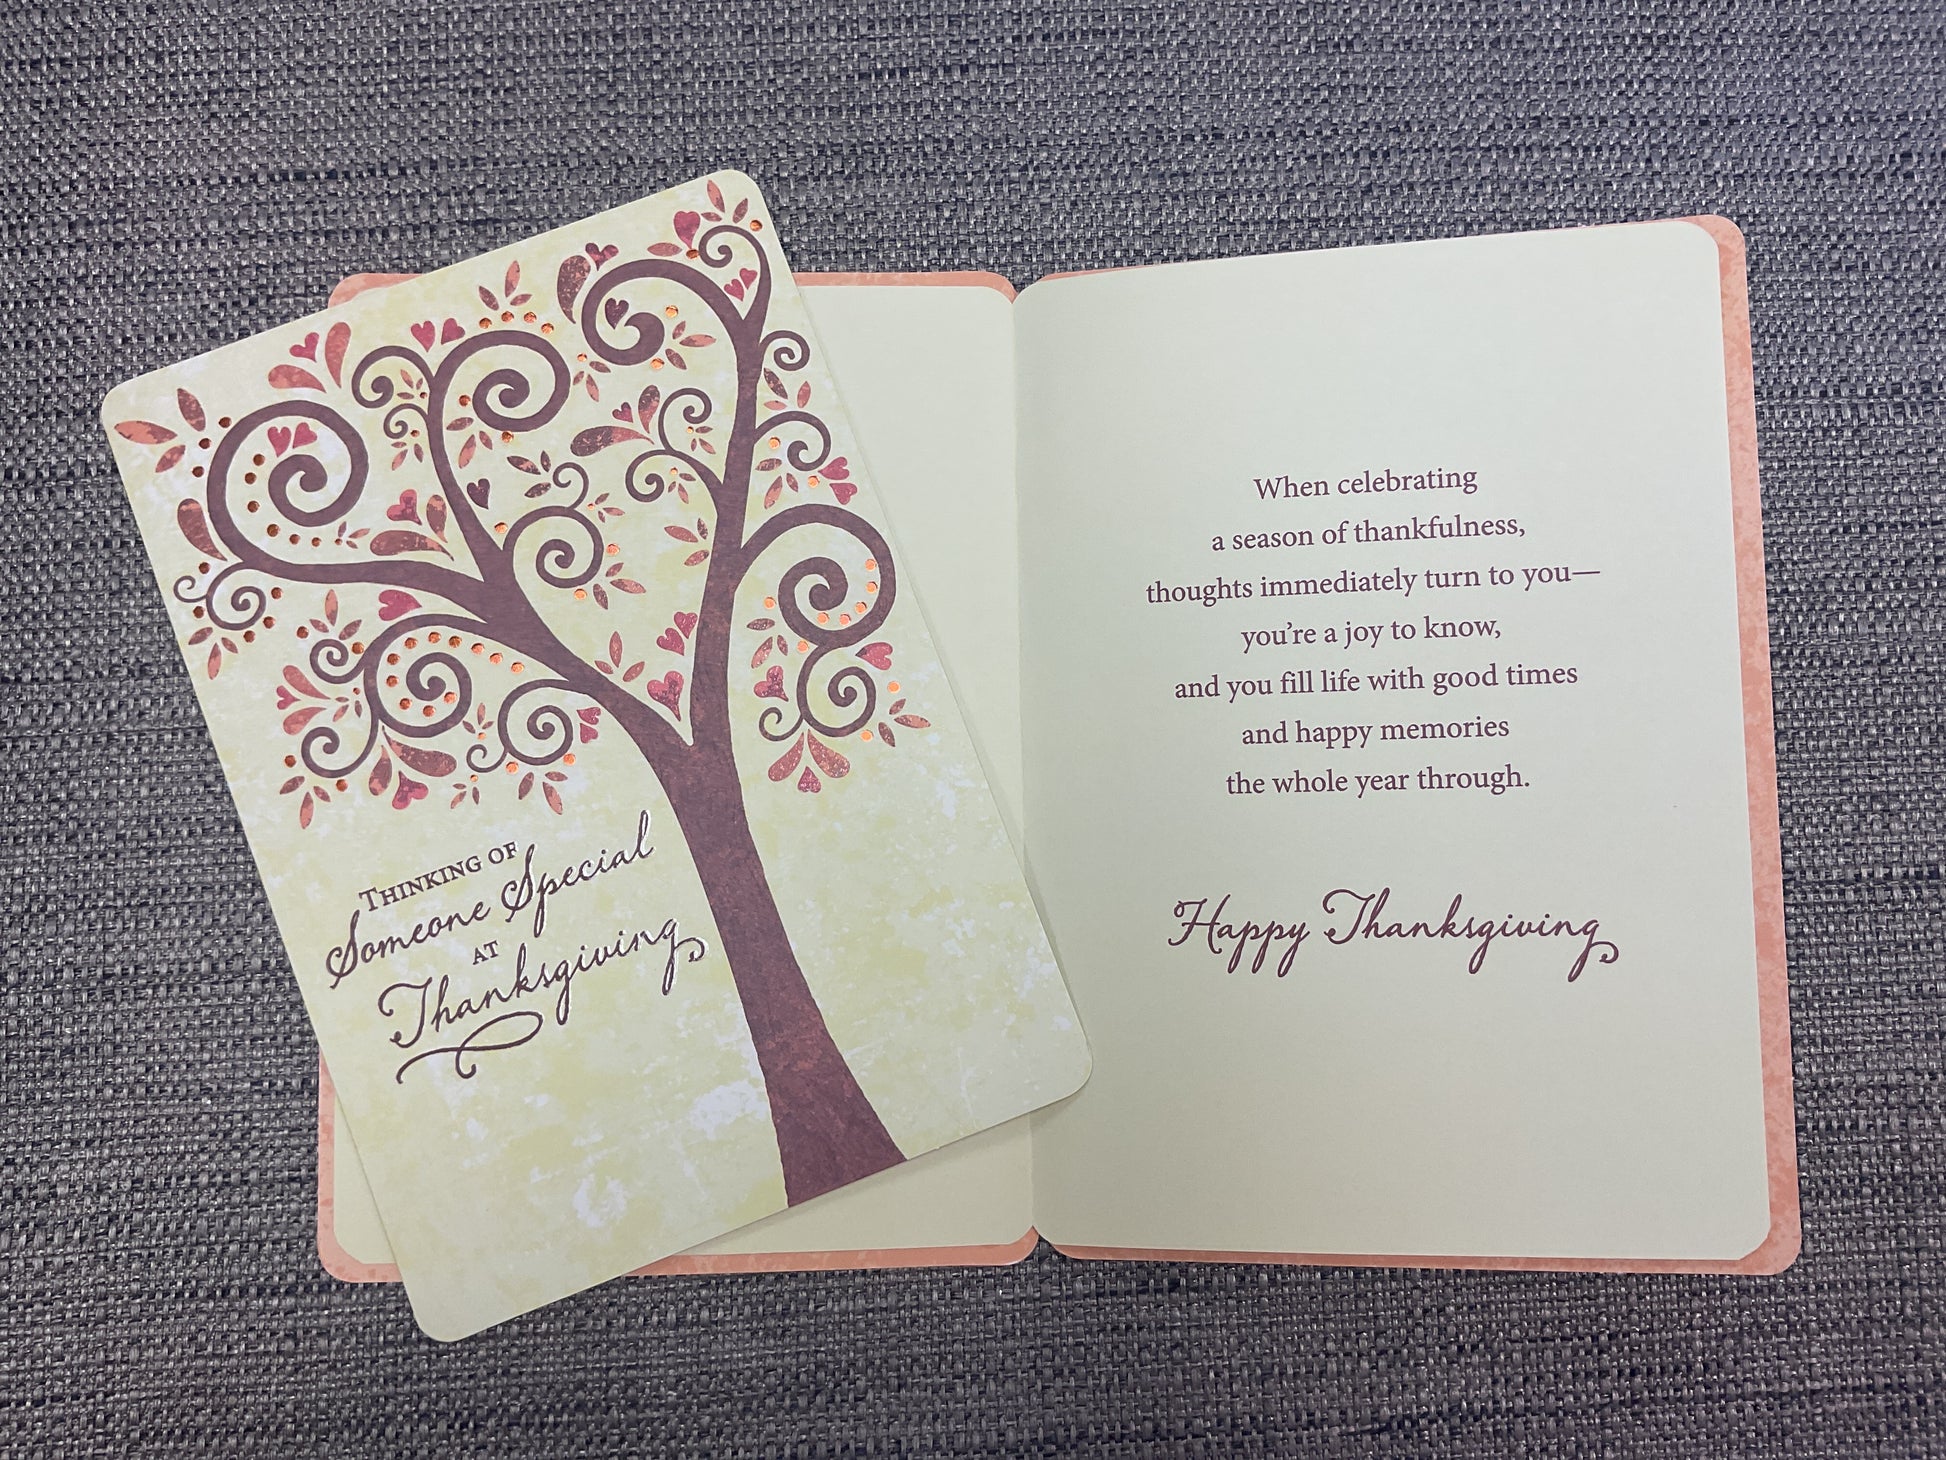 THINKING OF
Someone Special
AT
Thanksgiving
When celebrating
a season of thankfulness,
thoughts immediately turn to you—
you’re a joy to know,
and you fill life with good times
and happy memories
the whole year through.
Happy Thanksgiving